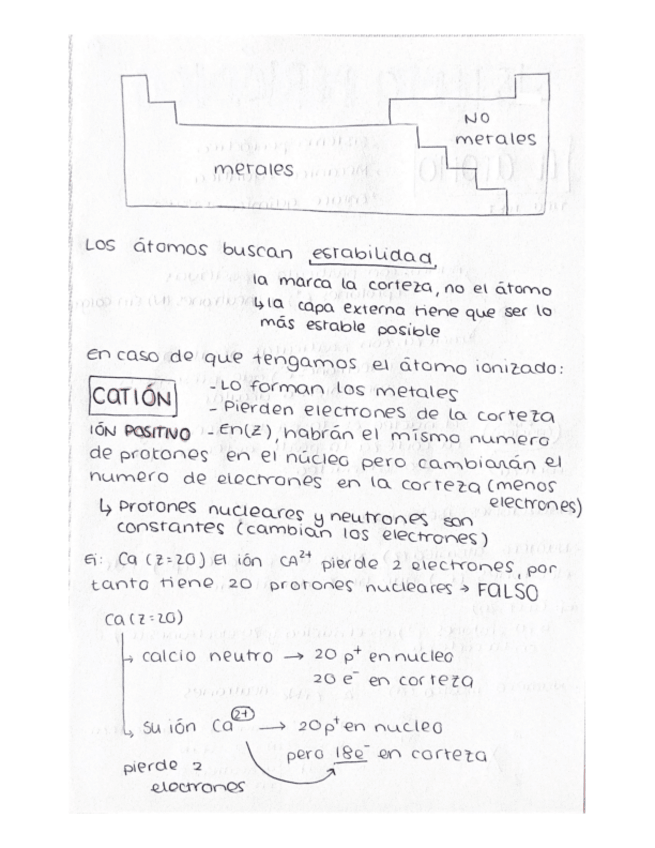 NO
metales
metales
Los átomos buscan estabilidad
la marca la corteza, no el átomo
↳ la capa externa tiene que ser lo
más estable posible
en caso de que tengamos el átomo ionizado:
CATIÓN
- Lo forman los metales
- Pierden electrones de la corteza
IÓN POSITIVO - En(z), habrán el mismo numero
de protones en el núcleo pero cambiarán el
numero de electrones en la corteza (menos
electrones)
↳ Protones nucleares y neutrones son
constantes (cambian los electrones)
Ej: Ca (z=20) El ión CA²⁺ pierde 2 electrones, por
tanto tiene 20 protones nucleares → FALSO
Ca (z=20)
↳ calcio neutro → 20 p⁺ en nucleo
20 e⁻ en corteza
↳ su ión Ca²⁺ → 20p⁺ en nucleo
pero 18e⁻ en corteza
pierde 2
electrones